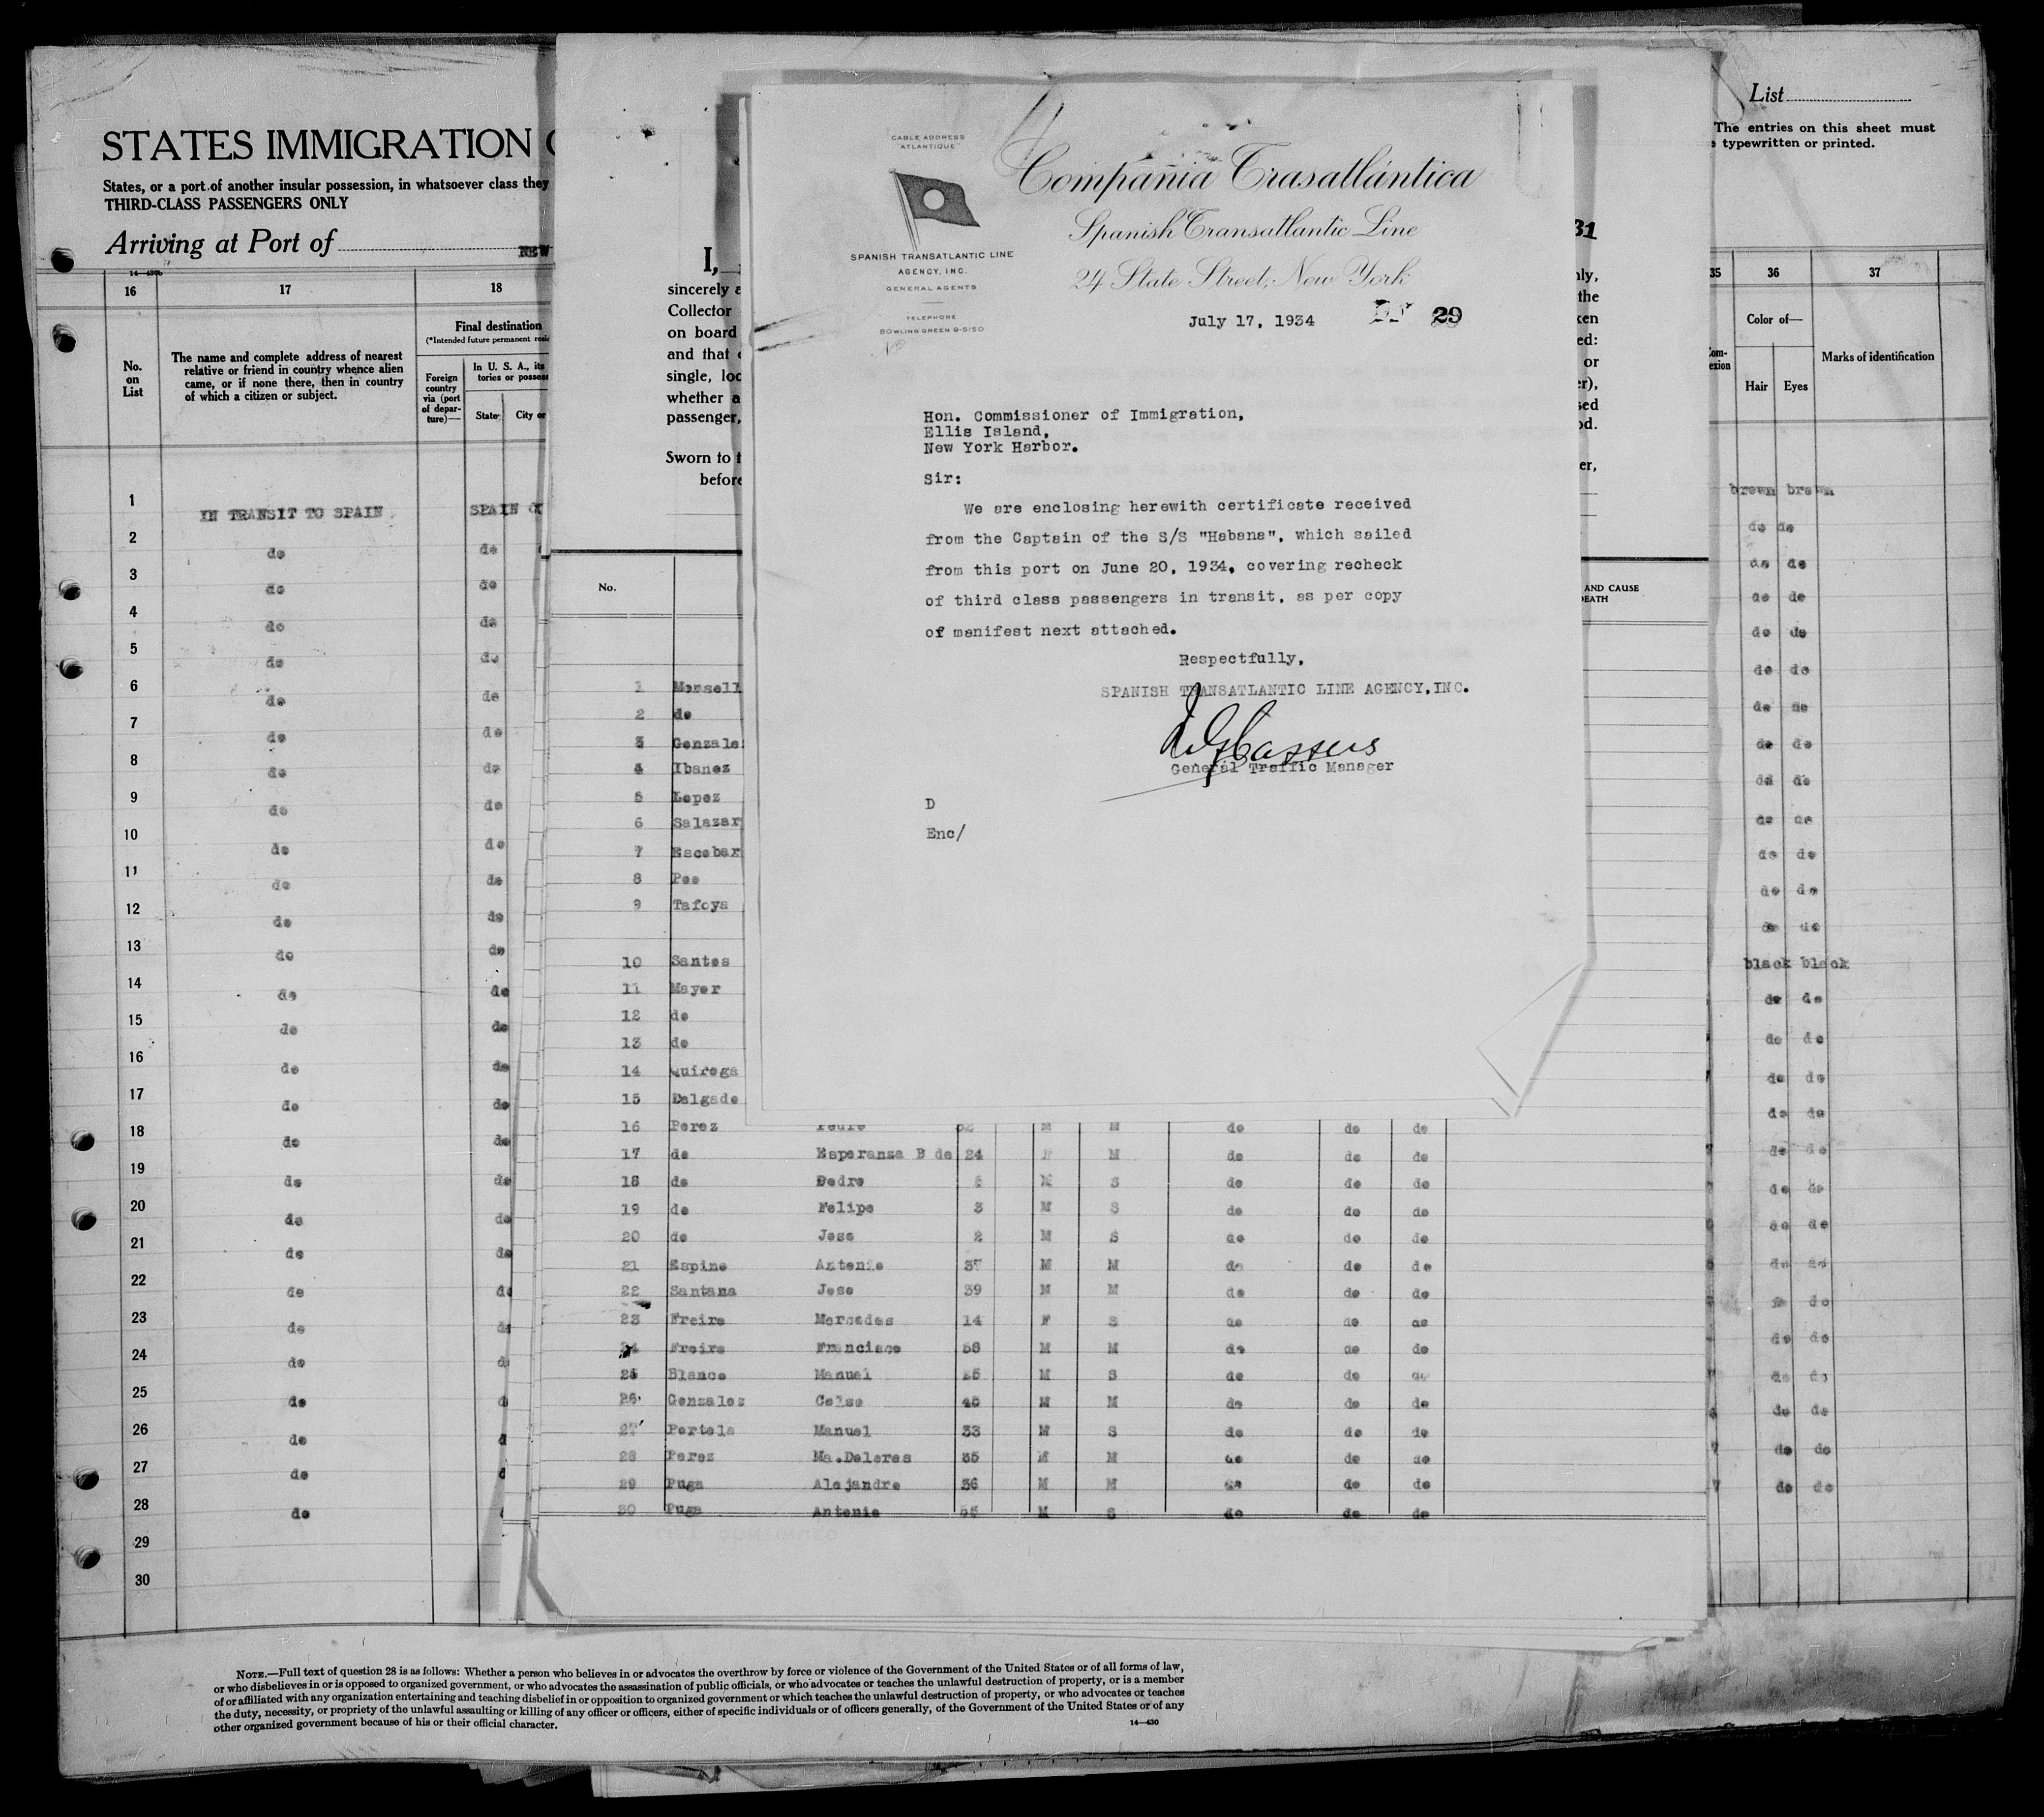 STATES IMMIGRATION
States, or a port of another insular possession, in whatsoever class they
THIRD-CLASS PASSENGERS ONLY
Arriving at Port of
NEW
16
17
18
No.
on
List
The name and complete address of nearest
relative or friend in country whence alien
came, or if none there, then in country
of which a citizen or subject.
Final destination
(*Intended future permanent
Foreign
country
via (port
of depar-
ture)—
In U. S. A., its
tories or
State
City or
1 IN TRANSIT TO SPAIN SPAIN
2 do do
3 do do
4 do do
5 do do
6 do do
7 do do
8 do do
9 do do
10 do do
11 do do
12 do do
13 do do
14 do do
15 do do
16 do do
17 do do
18 do do
19 do do
20 do do
21 do do
22 do
23 do
24 do
25 do
26 do
27 do
28 do
29
30
I,
sincerely
Collector
on board
and that
single,
whether
passenger,
Sworn to
before
No.
1 Monsell
2 do
3 Gonzale
4 Ibanez
5 Lopez
6 Salazar
7 Escobar
8 Poo
9 Tafoya
10 Santos
11 Mayer
12 do
13 do
14 Quiroga
15 Delgado
16 Perez M M do do do
17 do Esperanza B de 24 F M do do do
18 do Pedro M S do do do
19 do Felipe 3 M S do do do
20 do Jose 2 M S do do do
21 Espino Antonio 37 M M do do do
22 Santana Jose 39 M M do do do
23 Freire Mercedes 14 F S do do do
24 Freire Francisco 58 M M do do do
25 Blanco Manuel M S do do do
26 Gonzalez Celso 45 M M do do do
27 Portela Manuel 33 M S do do do
28 Perez Ma.Dolores 35 M do do do
29 Puga Alejandro 36 M M do do do
30 Puga Antonio M S do do do
CABLE ADDRESS
"ATLANTIQUE"
SPANISH TRANSATLANTIC LINE
AGENCY, INC.
GENERAL AGENTS
TELEPHONE
BOWLING GREEN 9-5150
Compañia Trasatlántica
Spanish Transatlantic Line
24 State Street, New York
July 17, 1934
29
Hon. Commissioner of Immigration,
Ellis Island,
New York Harbor.
Sir:
We are enclosing herewith certificate received
from the Captain of the S/S "Habana", which sailed
from this port on June 20, 1934, covering recheck
of third class passengers in transit, as per copy
of manifest next attached.
Respectfully,
SPANISH TRANSATLANTIC LINE AGENCY,INC.
General Traffic Manager
D
Enc/
31
the
or
AND CAUSE
List
The entries on this sheet must
typewritten or printed.
35
36
37
Color of—
Hair
Eyes
Marks of identification
brown brown
do do
do do
do do
do do
do do
do do
do do
do do
do do
do do
do do
do do
black black
do do
do do
do do
do do
do do
do do
do do
do do
do do
do do
do do
do do
do do
NOTE.—Full text of question 28 is as follows: Whether a person who believes in or advocates the overthrow by force or violence of the Government of the United States or of all forms of law,
or who disbelieves in or is opposed to organized government, or who advocates the assassination of public officials, or who advocates or teaches the unlawful destruction of property, or is a member
of or affiliated with any organization entertaining and teaching disbelief in or opposition to organized government or which teaches the unlawful destruction of property, or who advocates or teaches
the duty, necessity, or propriety of the unlawful assaulting or killing of any officer or officers, either of specific individuals or of officers generally, of the Government of the United States or of any
other organized government because of his or their official character.
14—430